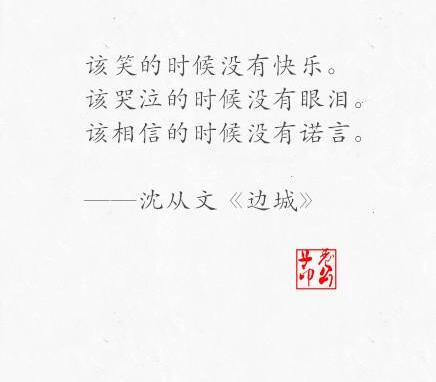 该笑的时候没有快乐。
该哭泣的时候没有眼泪。
该相信的时候没有诺言。
——沈从文《边城》